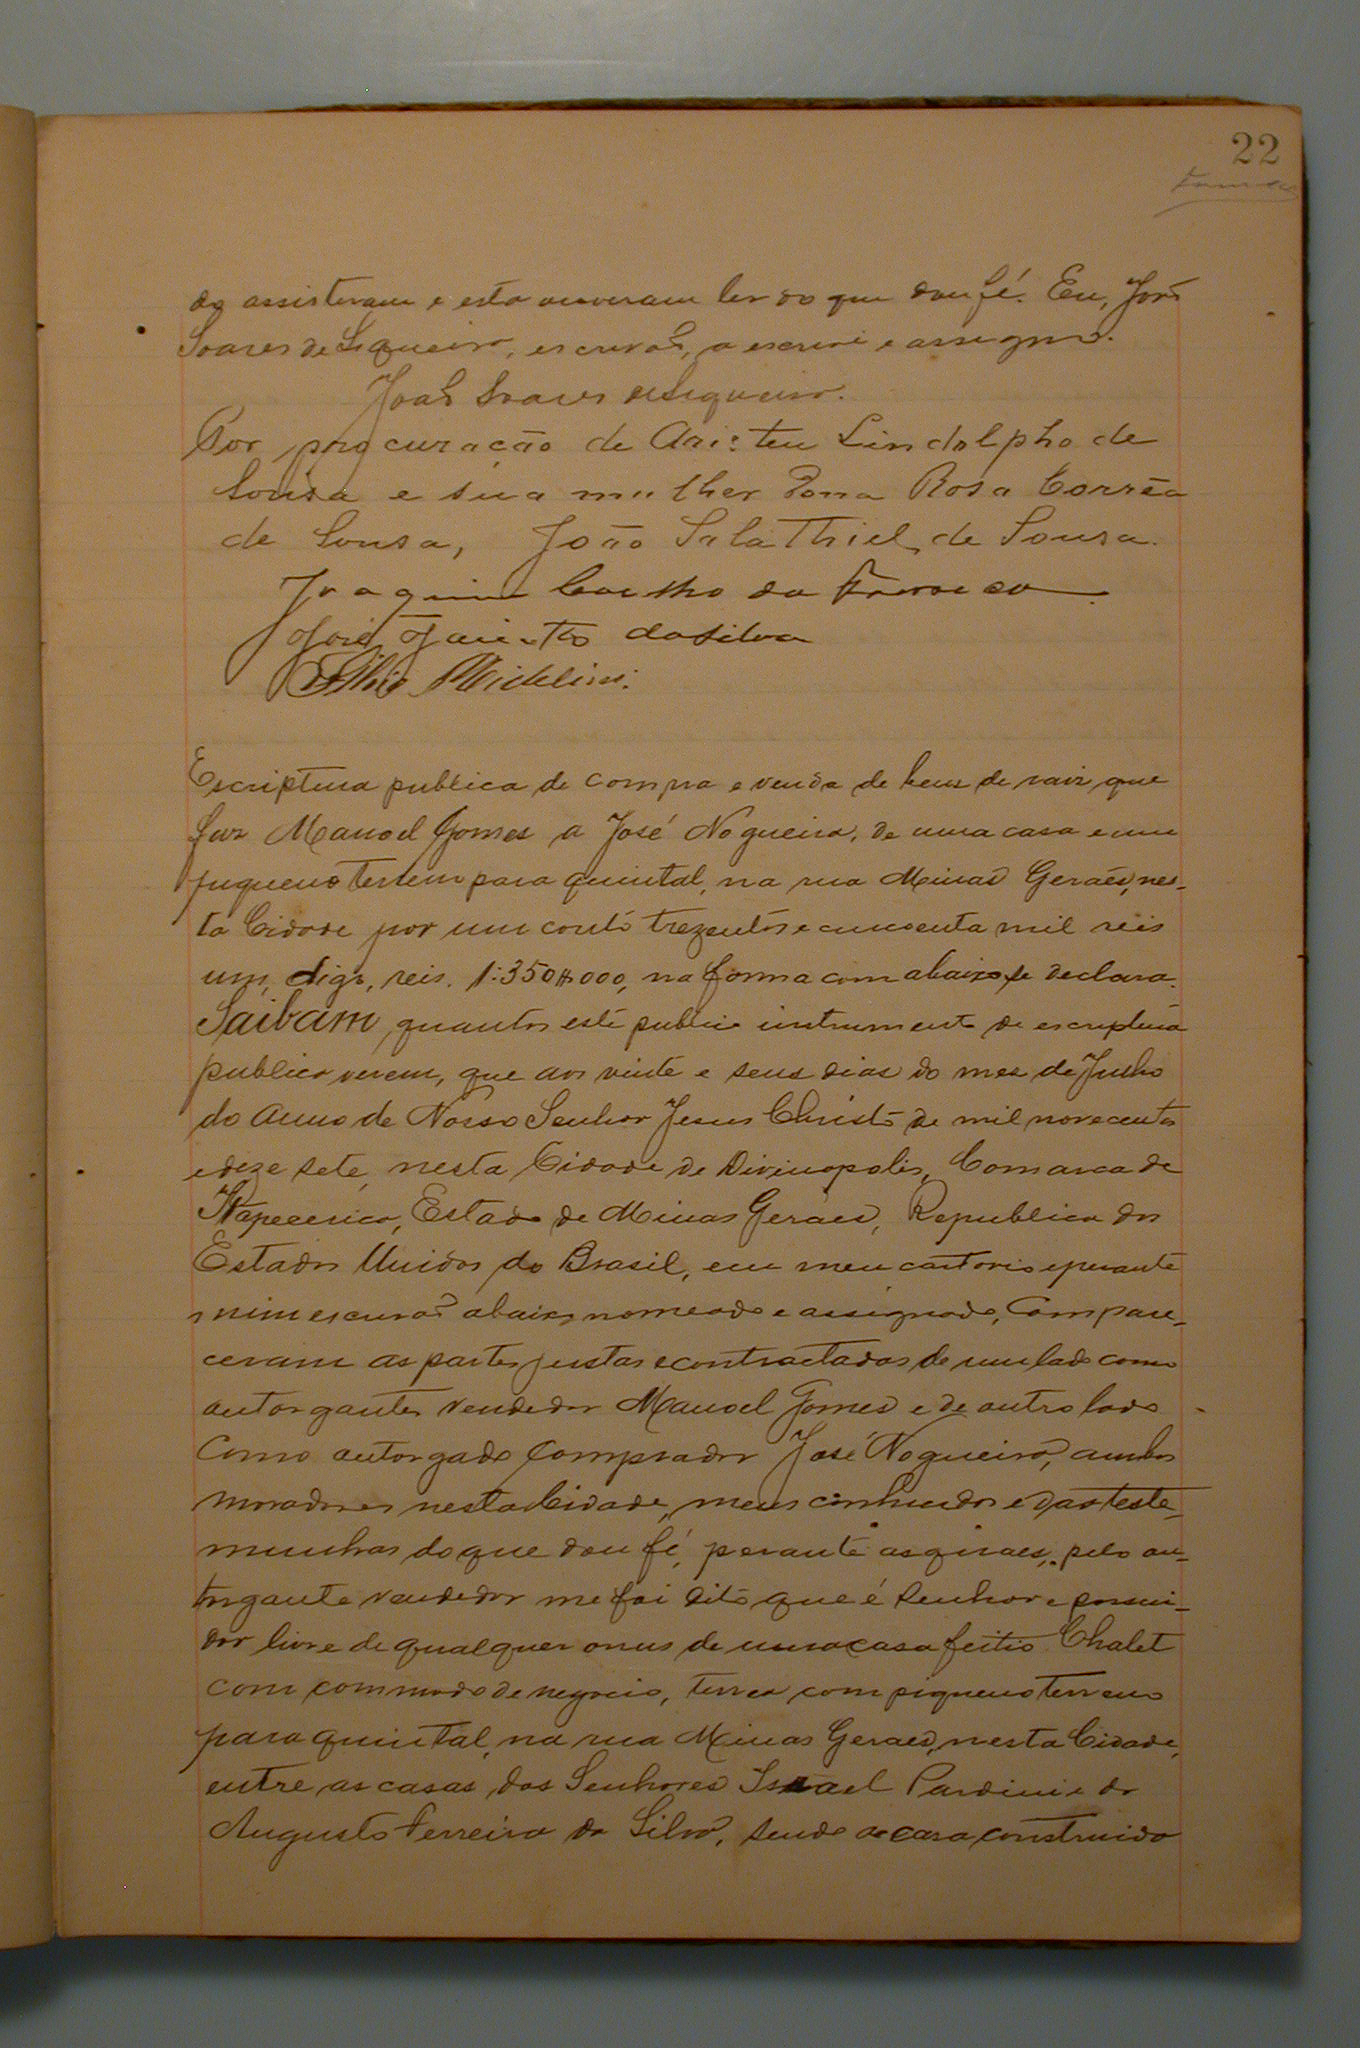 22
do assisteram e esta ouveram ler do que dou fé. Eu, João
Soares de Siqueira, escrivaõ, a escrevi e assigno.
João Soares de Siqueira.
Por procuração de Aristeu Lindolpho de
Sousa e sua mulher Dona Rosa Corrêa
de Sousa, João Salathiel de Sousa.
Joaquim Coelho da Fonseca
José Jacintho da Silva
Michelini.
Escriptura publica de compra e venda de bens de raiz que
faz Manoel Gomes a José Nogueira, de uma casa e um
piqueno terreno para quintal, na rua Minas Geraes, nes-
ta Cidade por um conto trezentos e cincoenta mil reis
um, digo, reis. 1:350$000, na forma com abaixo se declara.
Saibam quantos este publico instrumento de escriptura
publica verem, que aos vinte e seus dias do mez de Junho
do Anno de Nosso Senhor Jesus Christo de mil novecentos
e deze sete, nesta Cidade de Divinopolis, Comarca de
Itapecerica, Estado de Minas Geraes, Republica dos
Estados Unidos do Brasil, em meu cartorio e perante
mim escrivaõ abaixo nomeado e assignado, compare-
ceram as partes justas e contractadas de um lado como
outorgantes vendedor Manoel Gomes e de outro lado
como outorgado comprador José Nogueira, ambos
moradores nesta Cidade, meus conhecidos e das teste-
munhas do que dou fé, perante as quaes, pelo ou-
torgante vendedor me foi dito que é senhor e possui-
dor livre de qualquer onus de uma casa feitio Chalet
com commodo de negocio, terrea com piqueno terreno
para quintal, na rua Minas Geraes, nesta Cidade,
entre as casas dos Senhores Israel Pardini e do
Augusto Ferreira da Silva, sendo a casa construida